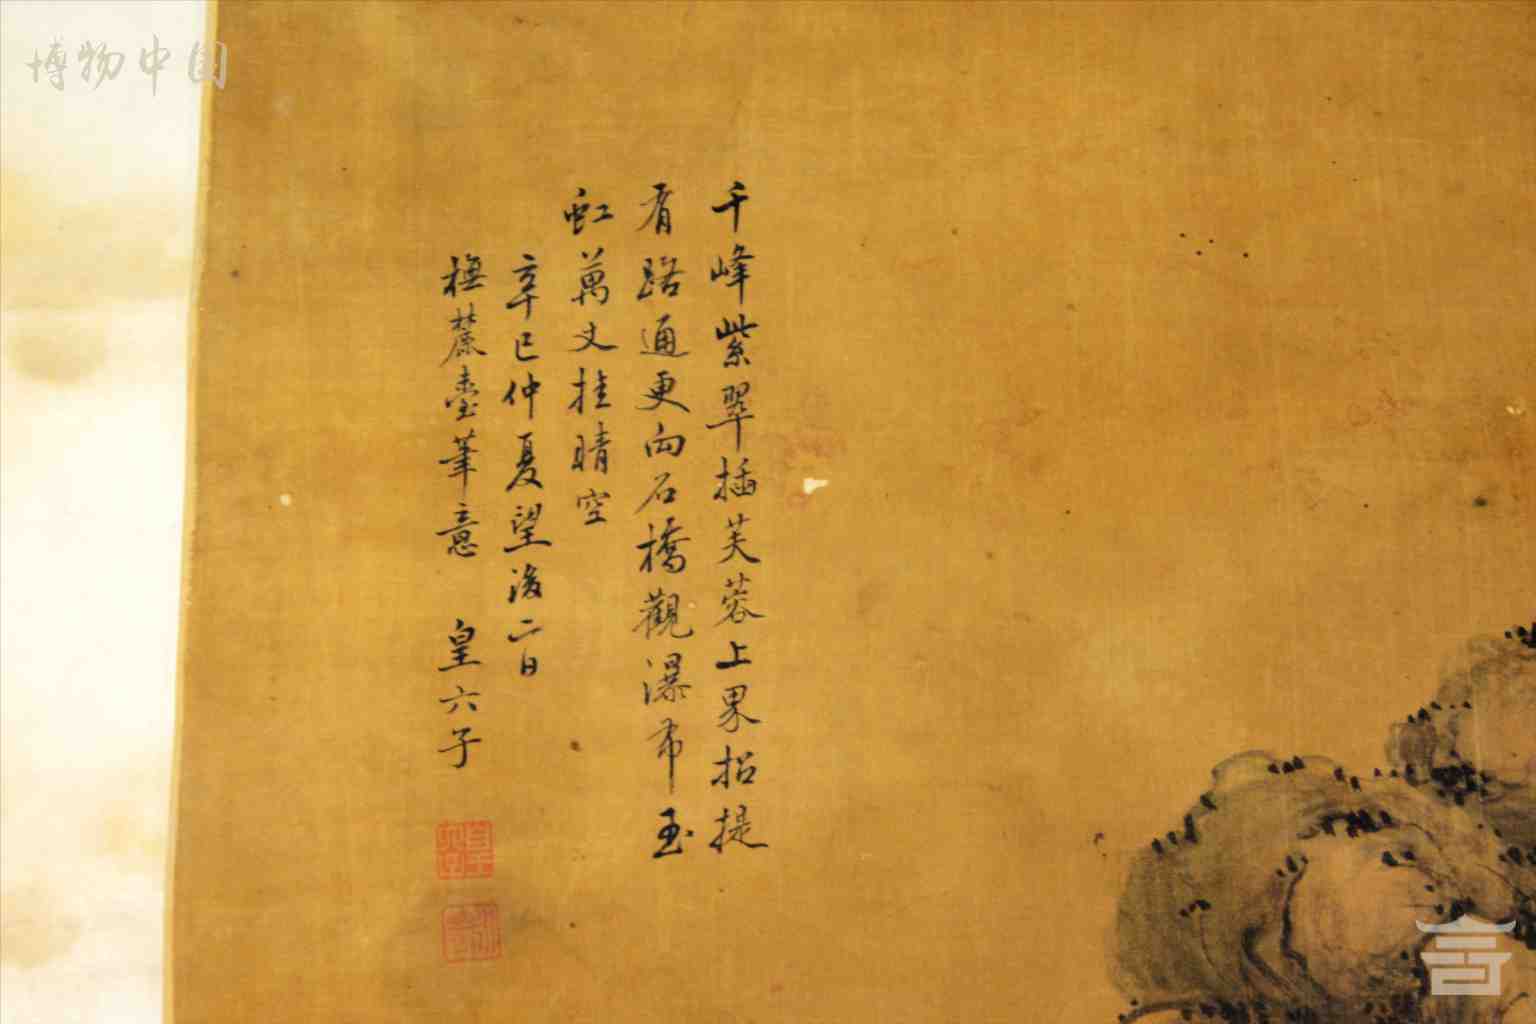 千峰紫翠插芙蓉上界招提
有路通更向石橋觀瀑布玉
虹萬丈挂晴空
辛巳仲夏望後二日
橅麓臺筆意 皇六子
博物中国